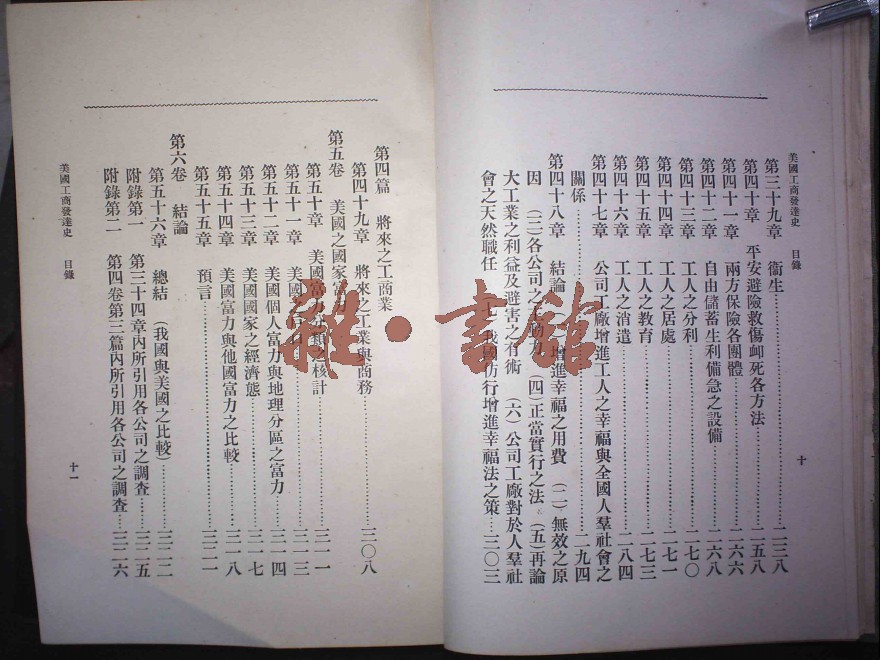 美國工商發達史 目錄 十
第三十九章 衞生……二三八
第四十章 平安避險救傷卹死各方法……二五八
第四十一章 兩方保險各團體……二六六
第四十二章 自由儲蓄生利備急之設備……二六八
第四十三章 工人之分利……二七〇
第四十四章 工人之居處……二七一
第四十五章 工人之教育……二七三
第四十六章 工人之消遣……二八四
第四十七章 公司工廠增進工人之幸福與全國人羣社會之
關係……二九四
第四十八章 結論 增進幸福之用費 (二)無效之原
因 (三)各公司之 (四)正當實行之法 (五)再論
大工業之利益及避害之有術 (六)公司工廠對於人羣社
會之天然職任 (七)我國仿行增進幸福法之策…三〇三
第四篇 將來之工商業
第四十九章 將來之工業與商務……三〇八
第五卷 美國之國家富力
第五十章 美國富力 核計……三一一
第五十一章 美國……三一三
第五十二章 美國個人富力與地理分區之富力…三一四
第五十三章 美國國家之經濟態……三一七
第五十四章 美國富力與他國富力之比較……三一八
第五十五章 預言……三二一
第六卷 結論
第五十六章 總結 (我國與美國之比較)……三二二
附錄第一 第三十四章內所引用各公司之調查……三二五
附錄第二 第四卷第三篇內所引用各公司之調查…三二六
美國工商發達史 目錄 十一
雜·書舘